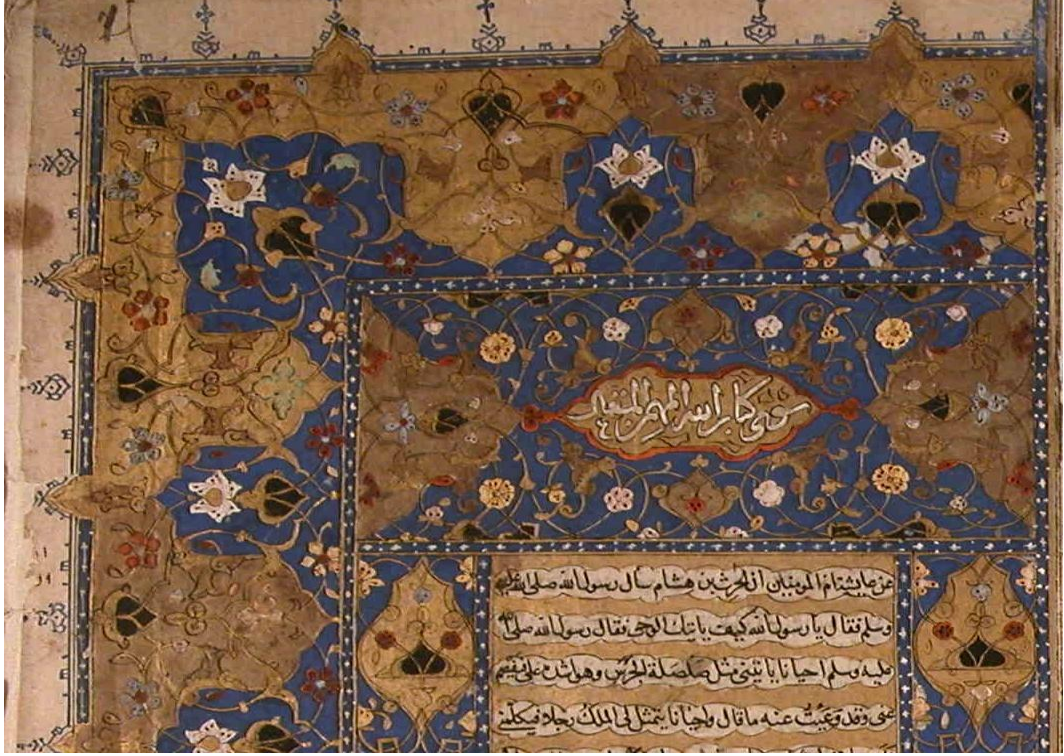 عن عايشة ام المومنين ان الحرث بن هشام سال رسول الله صلى الله عليه
وسلم فقال يا رسول الله كيف ياتيك الوحي فقال رسول الله صلى الله
عليه وسلم احيانا ياتيني مثل صلصلة الجرس وهو اشد على فيفصم
عنى وقد وعيت عنه ما قال واحيانا يتمثل لي الملك رجلا فيكلمني